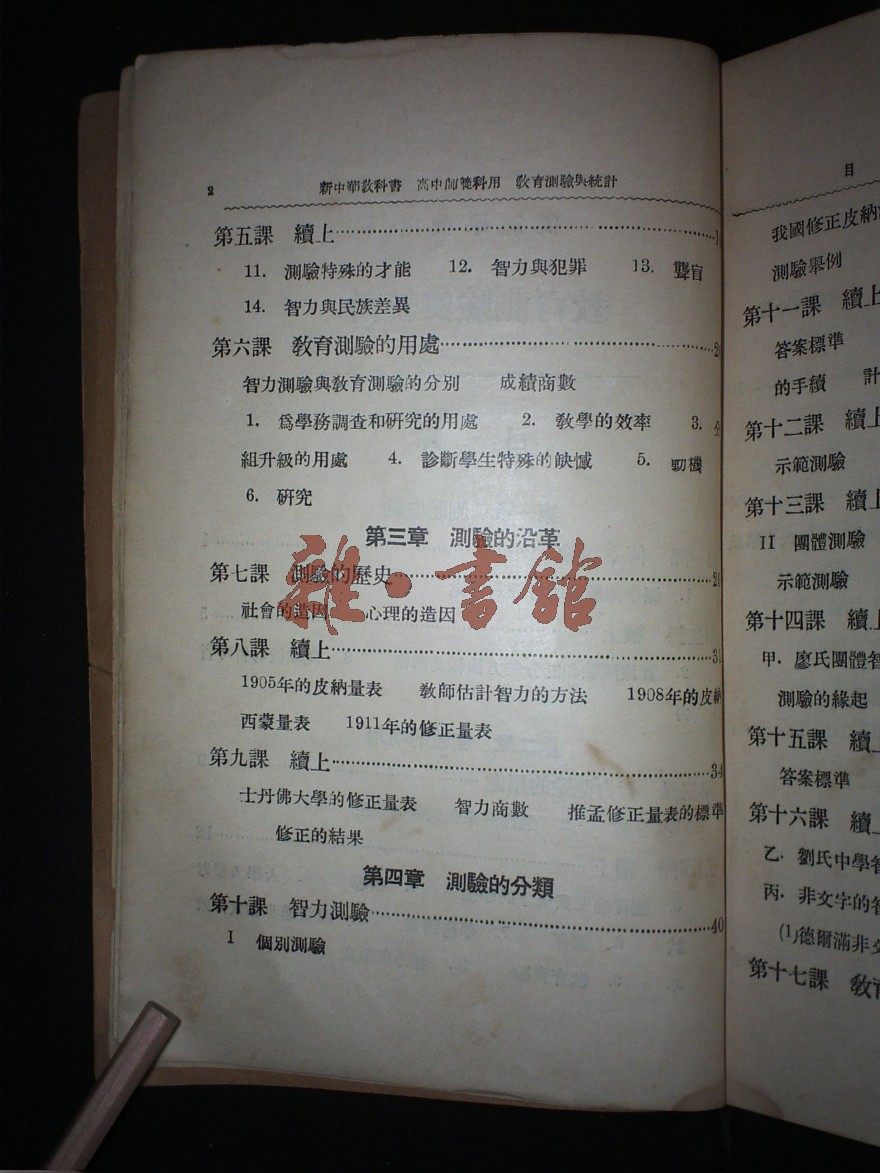 2 新中華教科書 高中師範科用 教育測驗與統計
第五課 續上
11. 測驗特殊的才能 12. 智力與犯罪 13. 聾盲
14. 智力與民族差異
第六課 教育測驗的用處
智力測驗與教育測驗的分別 成績商數
1. 爲學務調查和研究的用處 2. 教學的效率 3. 分
組升級的用處 4. 診斷學生特殊的缺憾 5. 動機
6. 研究
第三章 測驗的沿革
第七課 測驗的歷史
社會的造因 心理的造因
雅·書館
第八課 續上
1905年的皮納量表 教師估計智力的方法 1908年的皮納
西蒙量表 1911年的修正量表
第九課 續上 34
士丹佛大學的修正量表 智力商數 推孟修正量表的標準
修正的結果
第四章 測驗的分類
第十課 智力測驗 40
I 個別測驗
目
我國修正皮納
測驗舉例
第十一課 續上
答案標準
的手續 計
第十二課 續上
示範測驗
第十三課 續上
II 團體測驗
示範測驗
第十四課 續上
甲. 廖氏團體智
測驗的緣起
第十五課 續
答案標準
第十六課 續
乙. 劉氏中學智
丙. 非文字的智
(1)德爾滿非文
第十七課 教育